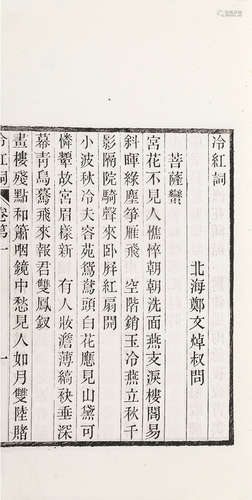 冷紅詞
北海鄭文焯叔問
菩薩蠻
宮花不見人憔悴朝朝洗面燕支淚樓閣易
斜暉綠塵箏雁飛　空階銷玉冷燕立秋千
影隔院騎聲來臥屏紅扇開
小波秋冷夫容苑鴛鴦頭白花應見山黛可
憐顰故宮眉樣新　有人妝澹薄縞袂垂深
幕青鳥驀飛來報君雙鳳釵
畫樓殘點和簫咽鏡中愁見人如月雙陸賭
冷紅詞
卷第一
一